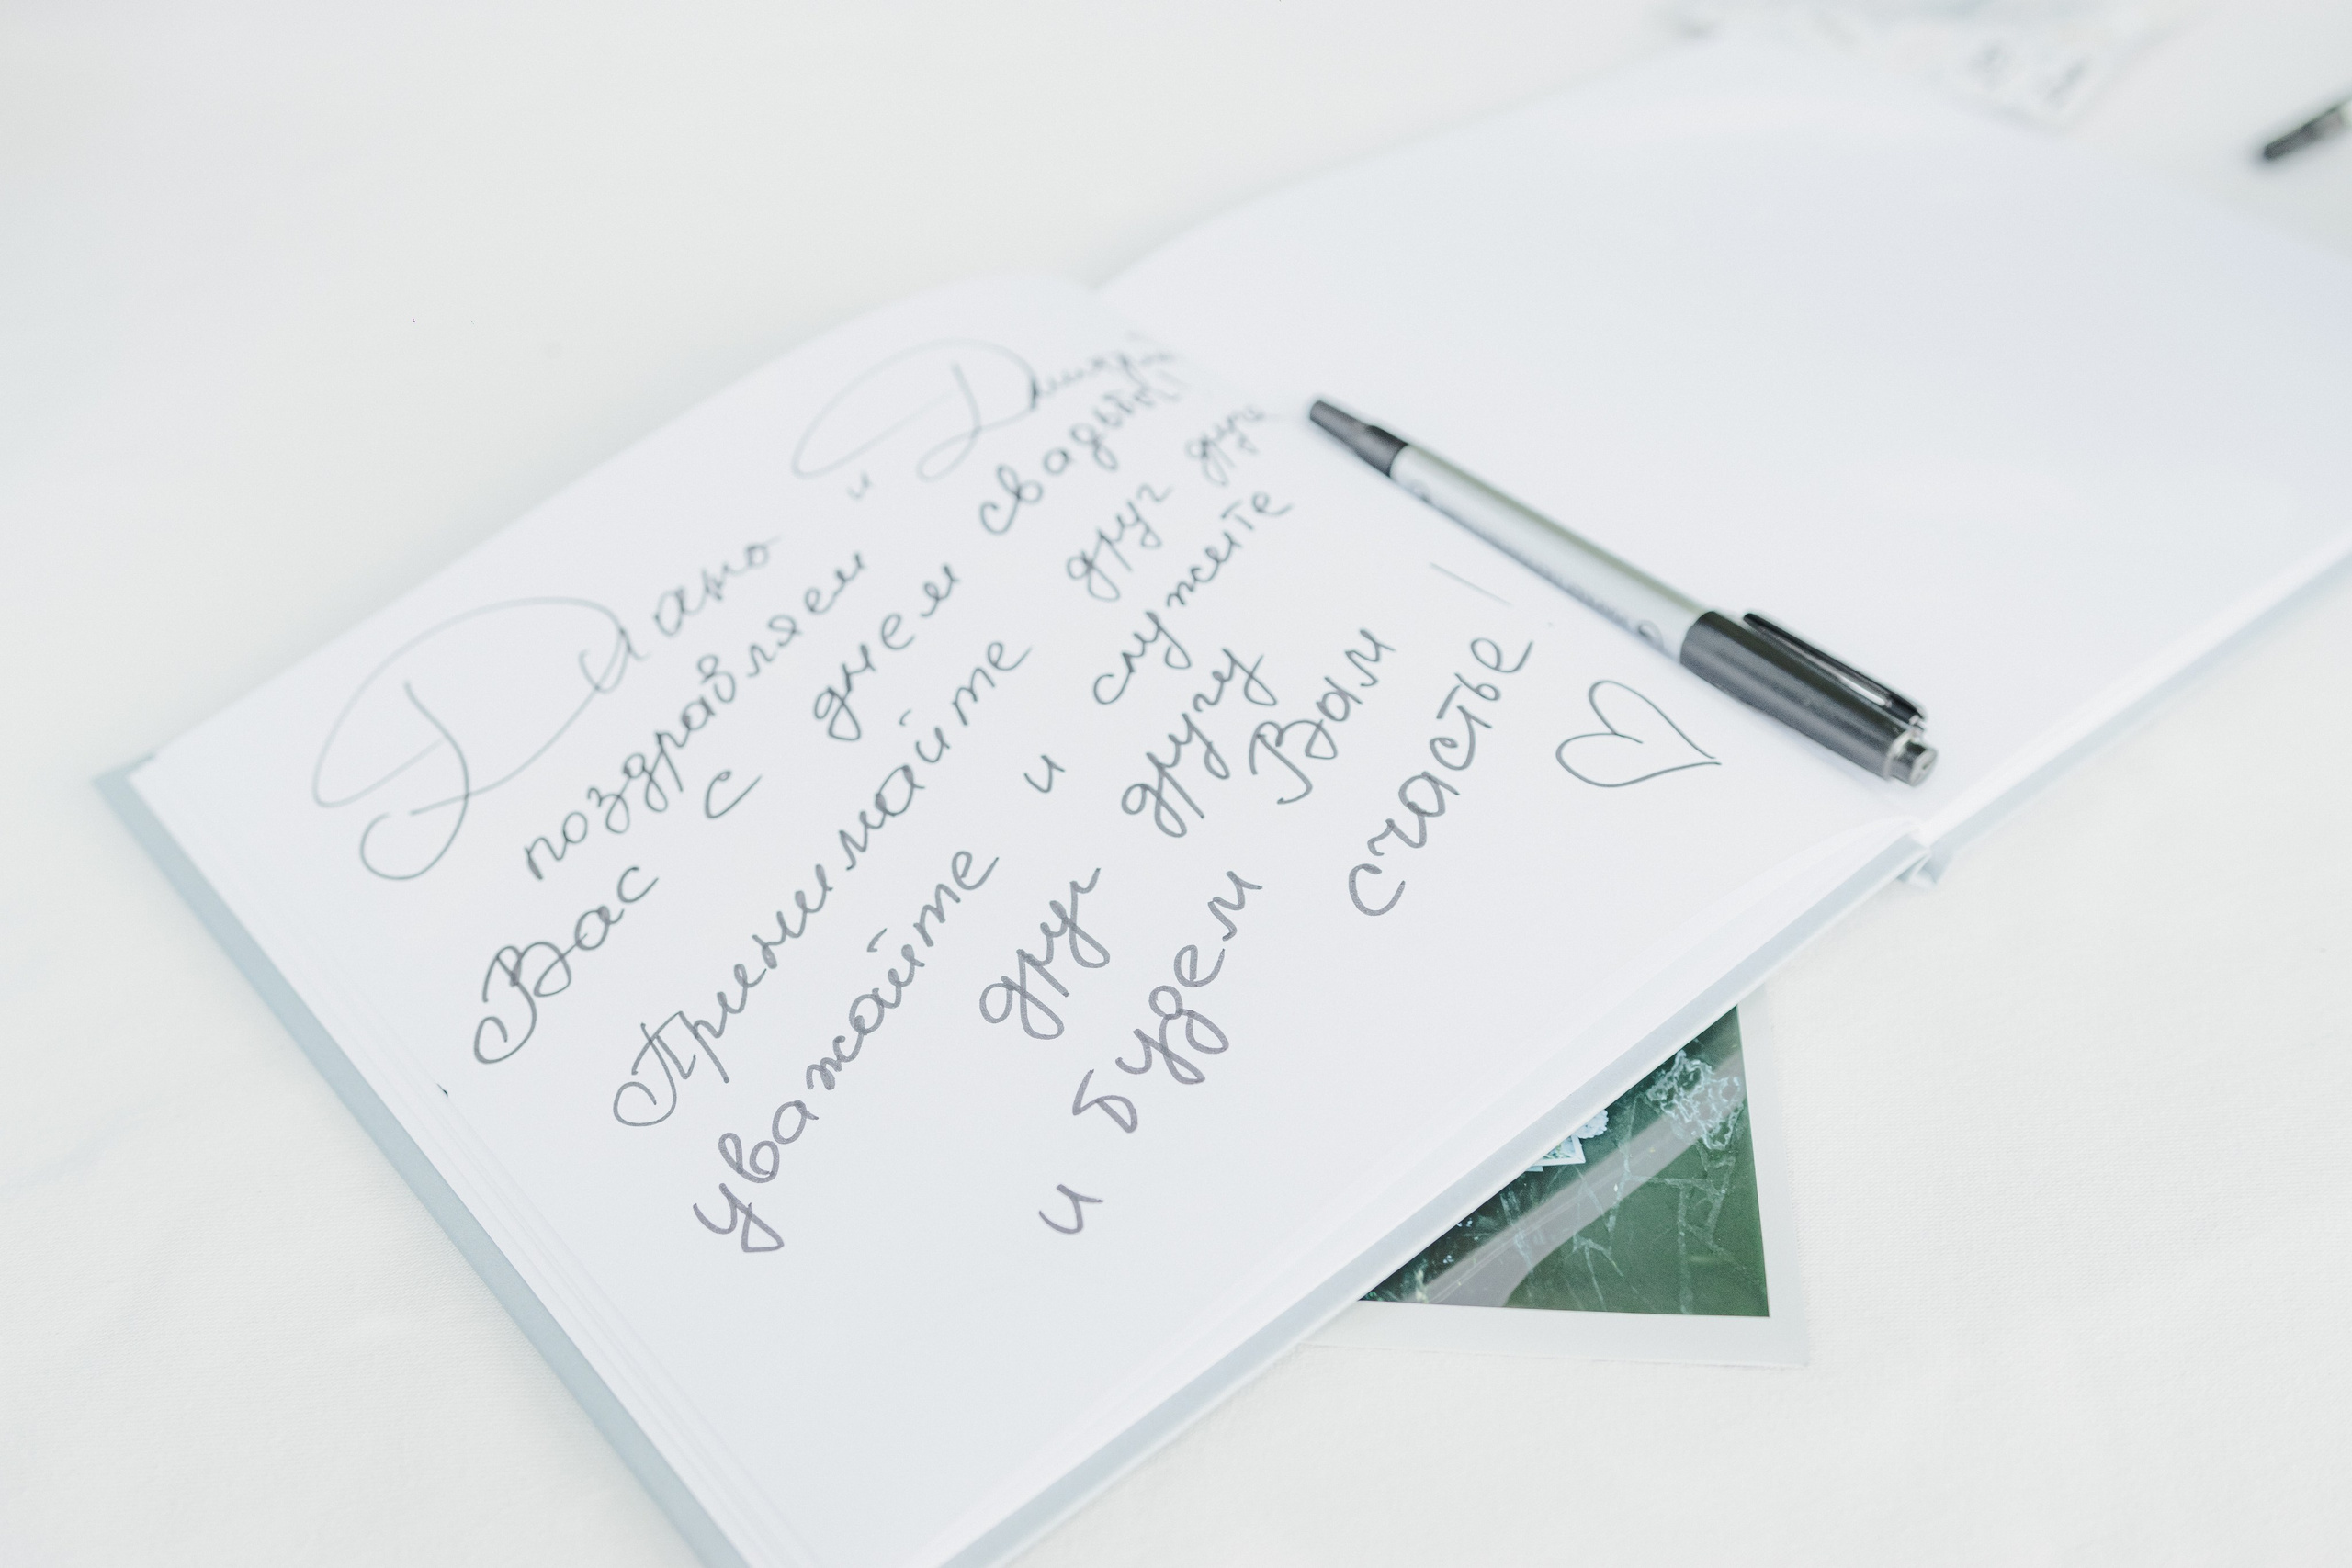 Диана и
поздравляем
Вас с днем свадьбы!
Принимайте друг друга
уважайте и служите
друг другу
и будет Вам
счастье!